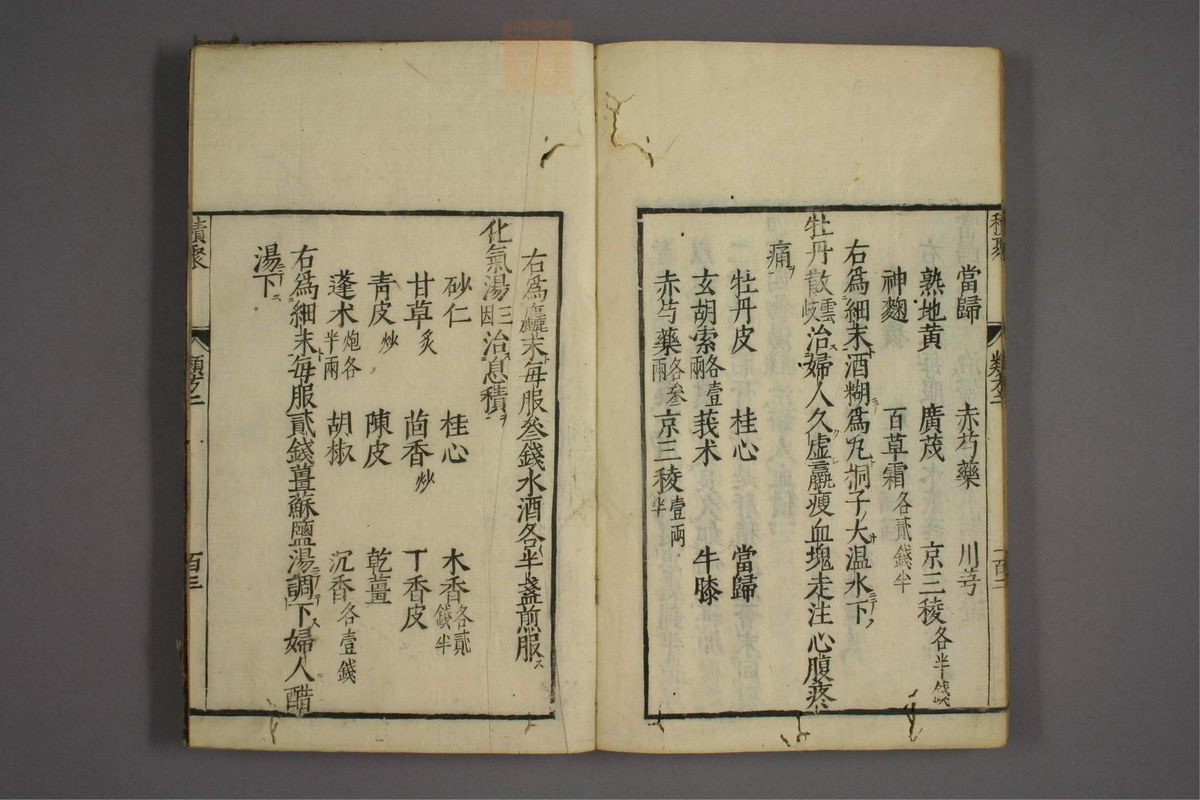 積聚
類方二
百二
當歸　赤芍藥　川芎
熟地黃　廣茂　京三稜各半錢
神麴　百草霜各貳錢半
右爲細末酒糊爲丸桐子大温水下
牡丹散雲岐治婦人久虛羸瘦血塊走注心腹疼
痛ヲ
牡丹皮　桂心　當歸
玄胡索各壹兩　莪朮　牛膝
赤芍藥各叄兩　京三稜壹兩半
右爲麤末每服叄錢水酒各半盞煎服ス
化氣湯三因治息積ヲ
砂仁　桂心　木香各貳錢半
甘草炙　茴香炒　丁香皮
靑皮炒　陳皮　乾薑
蓬朮炮各半兩　胡椒　沉香各壹錢
右爲細末每服貳錢薑蘇鹽湯調下ス婦人醋
湯下ス
積聚
類方二
百三